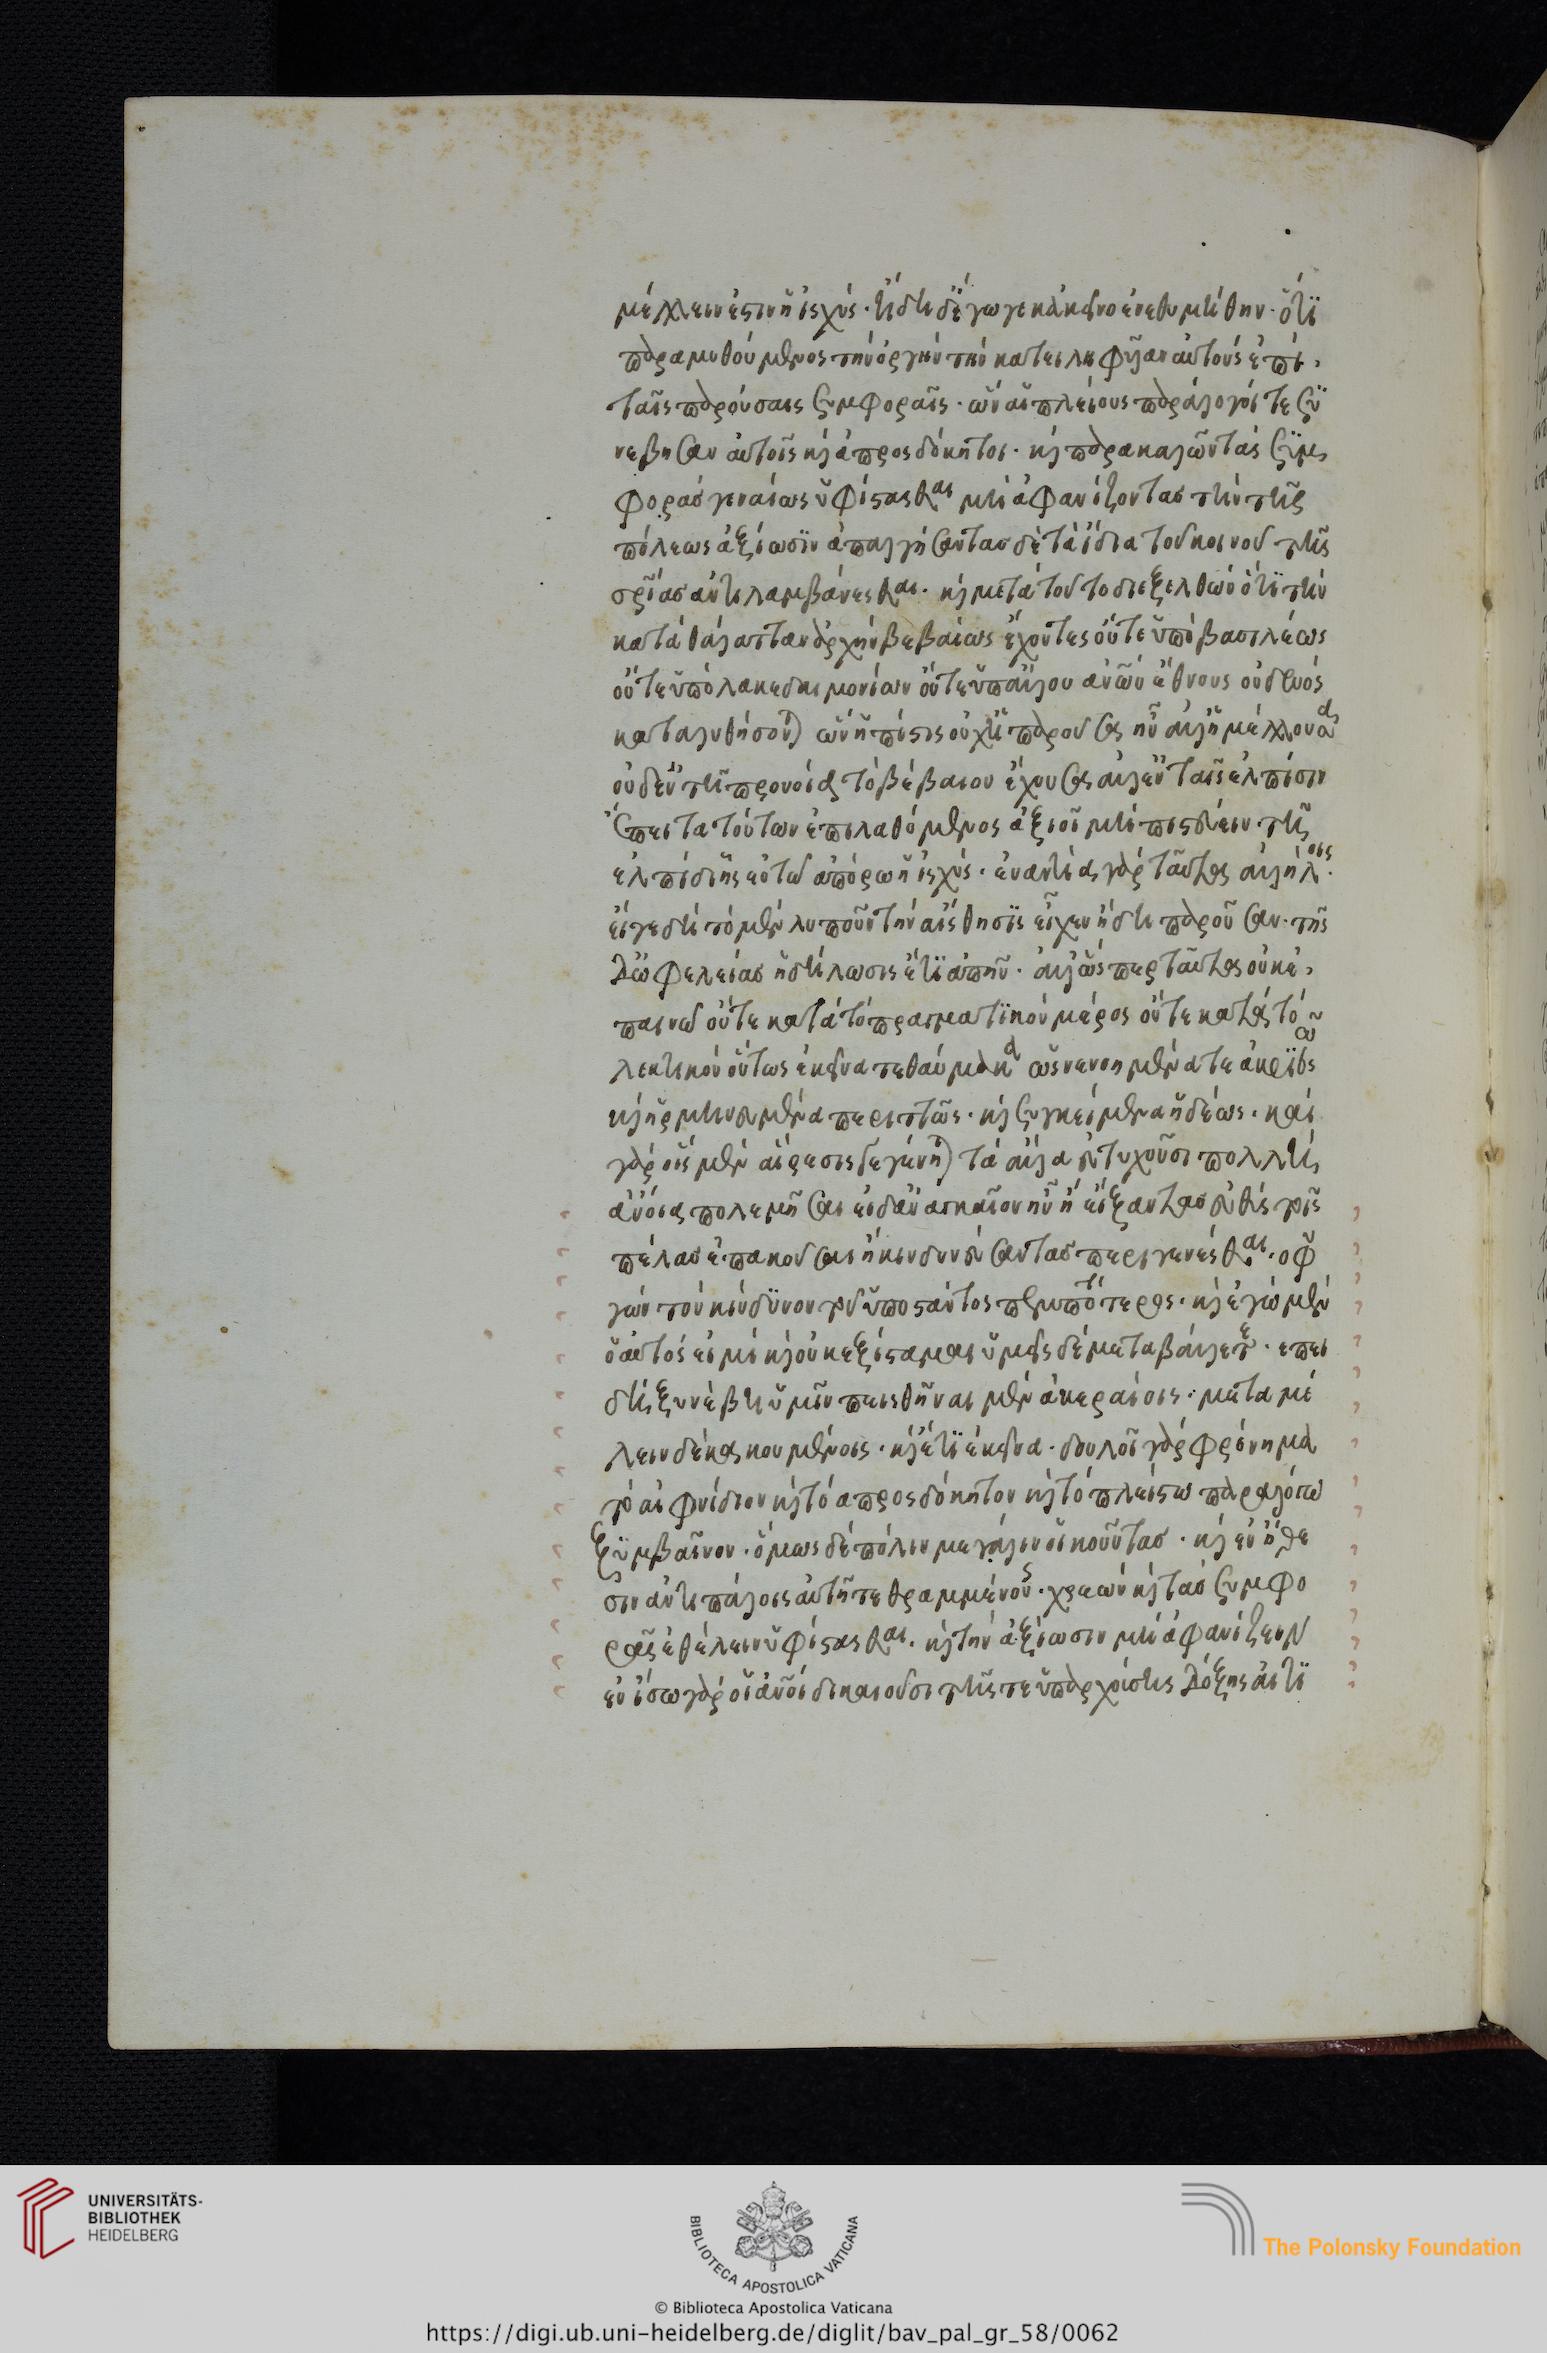 μέλλειν ἐστὶν ἡ ἰσχύς. ἤδη δ' ἔγωγε κἀκεῖνο ἐνεθυμήθην. ὅτι
παραμυθούμενος τὴν ὀργὴν τὴν κατειληφυῖαν αὐτοὺς ἐπὶ
ταῖς παρούσαις συμφοραῖς. ὧν αἱ πλείους παράλογοί τε συ
νέβησαν αὐτοῖς καὶ ἀπροσδόκητοι. καὶ παρακαλῶν τὰς συμ
φορὰς γενναίως ὑφίστασθαι μὴ ἀφανίζοντας τὴν τῆς
πόλεως ἀξίωσιν ἀπαλγήσαντας δὲ τὰ ἴδια τοῦ κοινοῦ τῆς
σρίας ἀντιλαμβάνεσθαι. καὶ μετὰ τοῦτο διεξελθὼν ὅτι τὴν
κατὰ θάλατταν ἀρχὴν βεβαίως ἔχοντες οὔτε ὑπὸ βασιλέως
οὔτε ὑπὸ λακεδαιμονίων οὔτε ὑπ' ἄλλου ἀνῶν ἔθνους οὐδενὸς
καταλυθήσονται ὧν ἡ πίστις οὐχ ἡ παροῦσα ἦν ἀλλ' ἡ μέλλουσα
οὐδ' ἐν τῇ προνοίᾳ τὸ βέβαιον ἔχουσα ἀλλ' ἐν ταῖς ἐλπίσιν
ἔπειτα τούτων ἐπιλαθόμενος ἀξιοῖ μὴ πιστεύειν τῇ
ἐλπίδι ἧς ἐν τῷ ἀπόρῳ ἡ ἰσχύς. ἐναντία γὰρ ταῦτα ἀλλήλοις.
εἴγε δὴ τὸ μὲν λυποῦν τὴν αἴσθησις εἶχεν ἤδη παροῦσαν. τῆς
δ' ὠφελείας ἡ δήλωσις ἔτι ἀπῆν. ἀλλ' ὥσπερ ταῦτα οὐκ ἐ
παινῶ οὔτε κατὰ τὸ πραγματικὸν μέρος οὔτε κατὰ τὸ
λεκτικὸν οὕτως ἐκεῖνα τεθαύμακα ὡς νενοημένα τε ἀκριβῶς
καὶ ἡρμηνευμένα περιττῶς. καὶ συγκείμενα ἡδέως. καὶ
γὰρ οἷς μὲν αἵρεσις γεγένηται τὰ ἄλλα εὐτυχοῦσι πολλὴ
ἄνοια πολεμῆσαι εἰ δ' ἀναγκαῖον ἦν ἢ εἴξαντας εὐθὺς τοῖς
πέλας ἐπακοῦσαι ἢ κινδυνεύσαντας περιγενέσθαι. ὁ φυ
γὼν τὸν κίνδυνον τοῦ ὑποστάντος μεμπτότερος. καὶ ἐγὼ μὲν
ὁ αὐτός εἰμι καὶ οὐκ ἐξίσταμαι ὑμεῖς δὲ μεταβάλλετε. ἐπει
δὴ ξυνέβη ὑμῖν πεισθῆναι μὲν ἀκεραίοις. μεταμέ
λειν δὲ κακουμένοις. καὶ ἔτι ἐκεῖνα. δουλοῖ γὰρ φρόνημα
τὸ αἰφνίδιον καὶ τὸ ἀπροσδόκητον καὶ τὸ πλείστῳ παραλόγῳ
ξυμβαῖνον. ὅμως δὲ πόλιν μεγάλην οἰκοῦντας. καὶ ἐν ἤθε
σιν ἀντιπάλοις αὐτῇ τεθραμμένους. χρεὼν καὶ τὰς ξυμφο
ρὰς ἐθέλειν ὑφίστασθαι. καὶ τὴν ἀξίωσιν μὴ ἀφανίζειν
ἐν ἴσῳ γὰρ οἱ ἀνοι δικαιοῦσι τῆς τε ὑπαρχούσης δόξης αἰτι
UNIVERSITÄTS-
BIBLIOTHEK
HEIDELBERG
BIBLIOTECA APOSTOLICA VATICANA
The Polonsky Foundation
© Biblioteca Apostolica Vaticana
https://digi.ub.uni-heidelberg.de/diglit/bav_pal_gr_58/0062